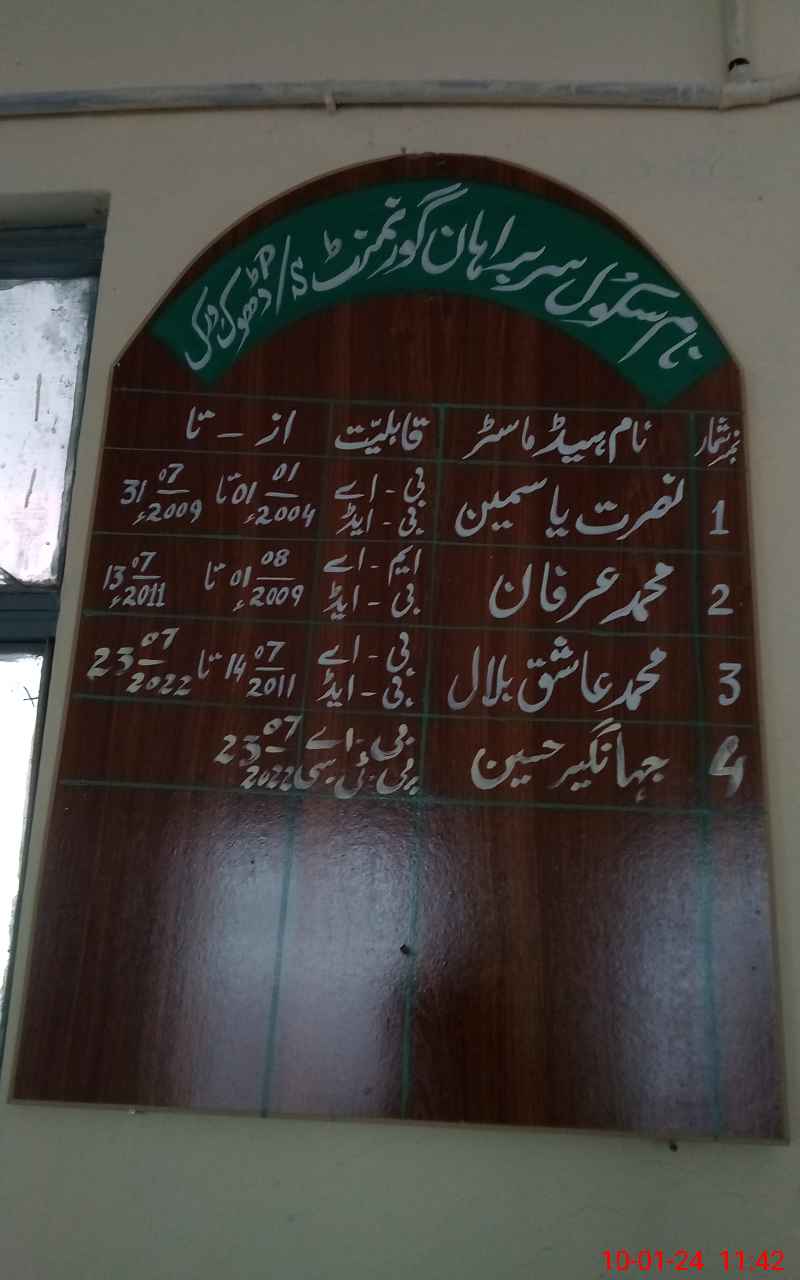 نام سکول سربراہان گورنمنٹ P/S ڈھوک ورک
نمبر شمار نام ہیڈ ماسٹر قابلیّت از - تا
1 نصرت یاسمین بی - اے بی - ایڈ 01 01 2004ء تا 31 07 2009ء
2 محمد عرفان ایم - اے بی - ایڈ 01 08 2009ء تا 13 07 2011ء
3 محمد عاشق بلال بی - اے بی - ایڈ 14 07 2011 تا 23 07 2022
4 جہانگیر حسین بی - اے پی - ٹی سی 23 07 2022
10-01-24 11:42